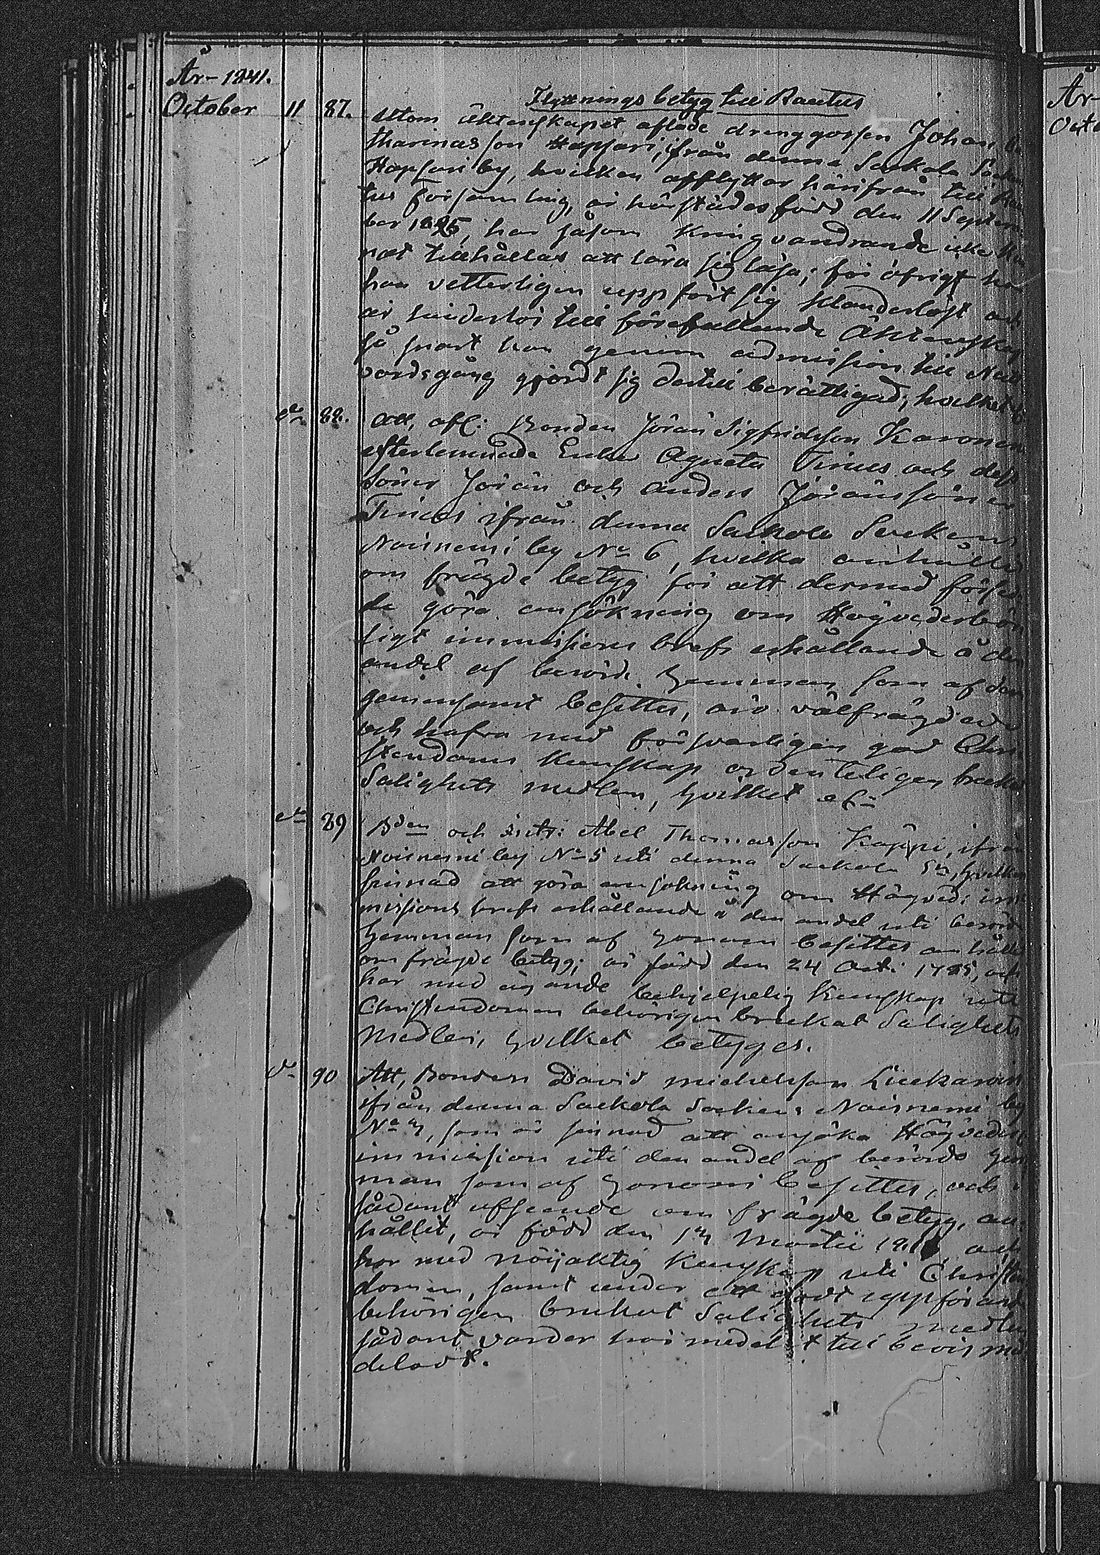 År 1841.
October 11 87. Flyttnings betyg till Rautus
Utom äktenskapet aflade drenggossen Johan
tharinasson Hapsari, från denna Sackola
Hapsari by, hvilken afflyttar härifrån till
tus församling, är härstädes född den 11 Septem
ber 1825, har såsom kringvandrande icke
nat tillhållas att lära sig läsa; för öfrigt
han vetterligen uppfört sig klanderlöst och
är hinderlös till förefallande Äktenskap
så snart han genom admission till Natt
vardsgång gjordt sig dertill berättigad; hvilket
do 88. Att, afl. Bonden Jöran Sigfridsson Karonen
efterlemnade Enka Agneta Tirius och dess
Söner Jöran och Anders Jöranssöner
Tirius ifrån denna Sackola Sockens
Noisniemi by No 6, hvilka anhållit
om frägde betyg för att dermed
de göra ansökning om Högvederbör
ligt immissions brefs erhållande å den
andel af berörde Hemman, som af dem
gemensamt besittes, äro välfrägdade
och hafva med försvarligen god Chri
stendoms kunskap ordenteligen brukat
Salighets medlen, hvilket
do 89 Bden och Abel Thomasson Käppi, ifrån
Noisniemi by No 5 uti denna Sackola Sn, hvilken
sinnad att göra ansökning om Högved: im
missions brefs erhållande å den andel uti berörde
Hemman som af honom besittes anhållit
om frägde betyg; är född den 24 Oct: 1785, och
har med ägande behjelpelig kunskap uti
Christendomen behörigen brukat Salighets
Medlen; hvilket betyges.
do 90 Att, Bonden David Michelsson Luckanen
ifrån denna Sackola Socken: Noisniemi by
No, som är sinnad att ansöka Högveder
immission uti den andel af berörde Hem
man som af honom besittes, och i
sådant afseende om frägde betyg, an
hållit, är född den Martii och
har med nöijaktig kunskap uti Christen
domen, samt under ett godt uppförande
behörigen brukat Salighets medlen
sådant varder härmedelst till bevis med
deladt.
År
Octo